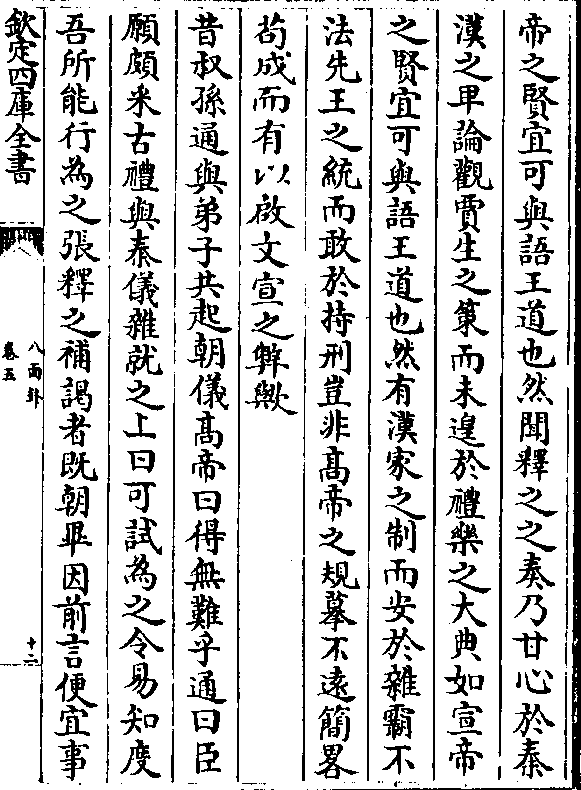 帝之賢宜可與語王道也然聞釋之之奏乃甘心於秦
漢之卑論觀賈生之策而未遑於禮樂之大典如宣帝
之賢宜可與語王道也然有漢家之制而安於雜霸不
法先王之統而敢於持刑豈非髙帝之規摹不逺簡畧
茍成而有以啟文宣之弊歟
昔叔孫通與弟子共起朝儀髙帝曰得無難乎通曰臣
願頗采古禮與秦儀雜就之上曰可試為之令易知度
吾所能行為之張釋之補謁者既朝畢因前言便宜事
欽定四庫全書
八面鋒
卷五
十二